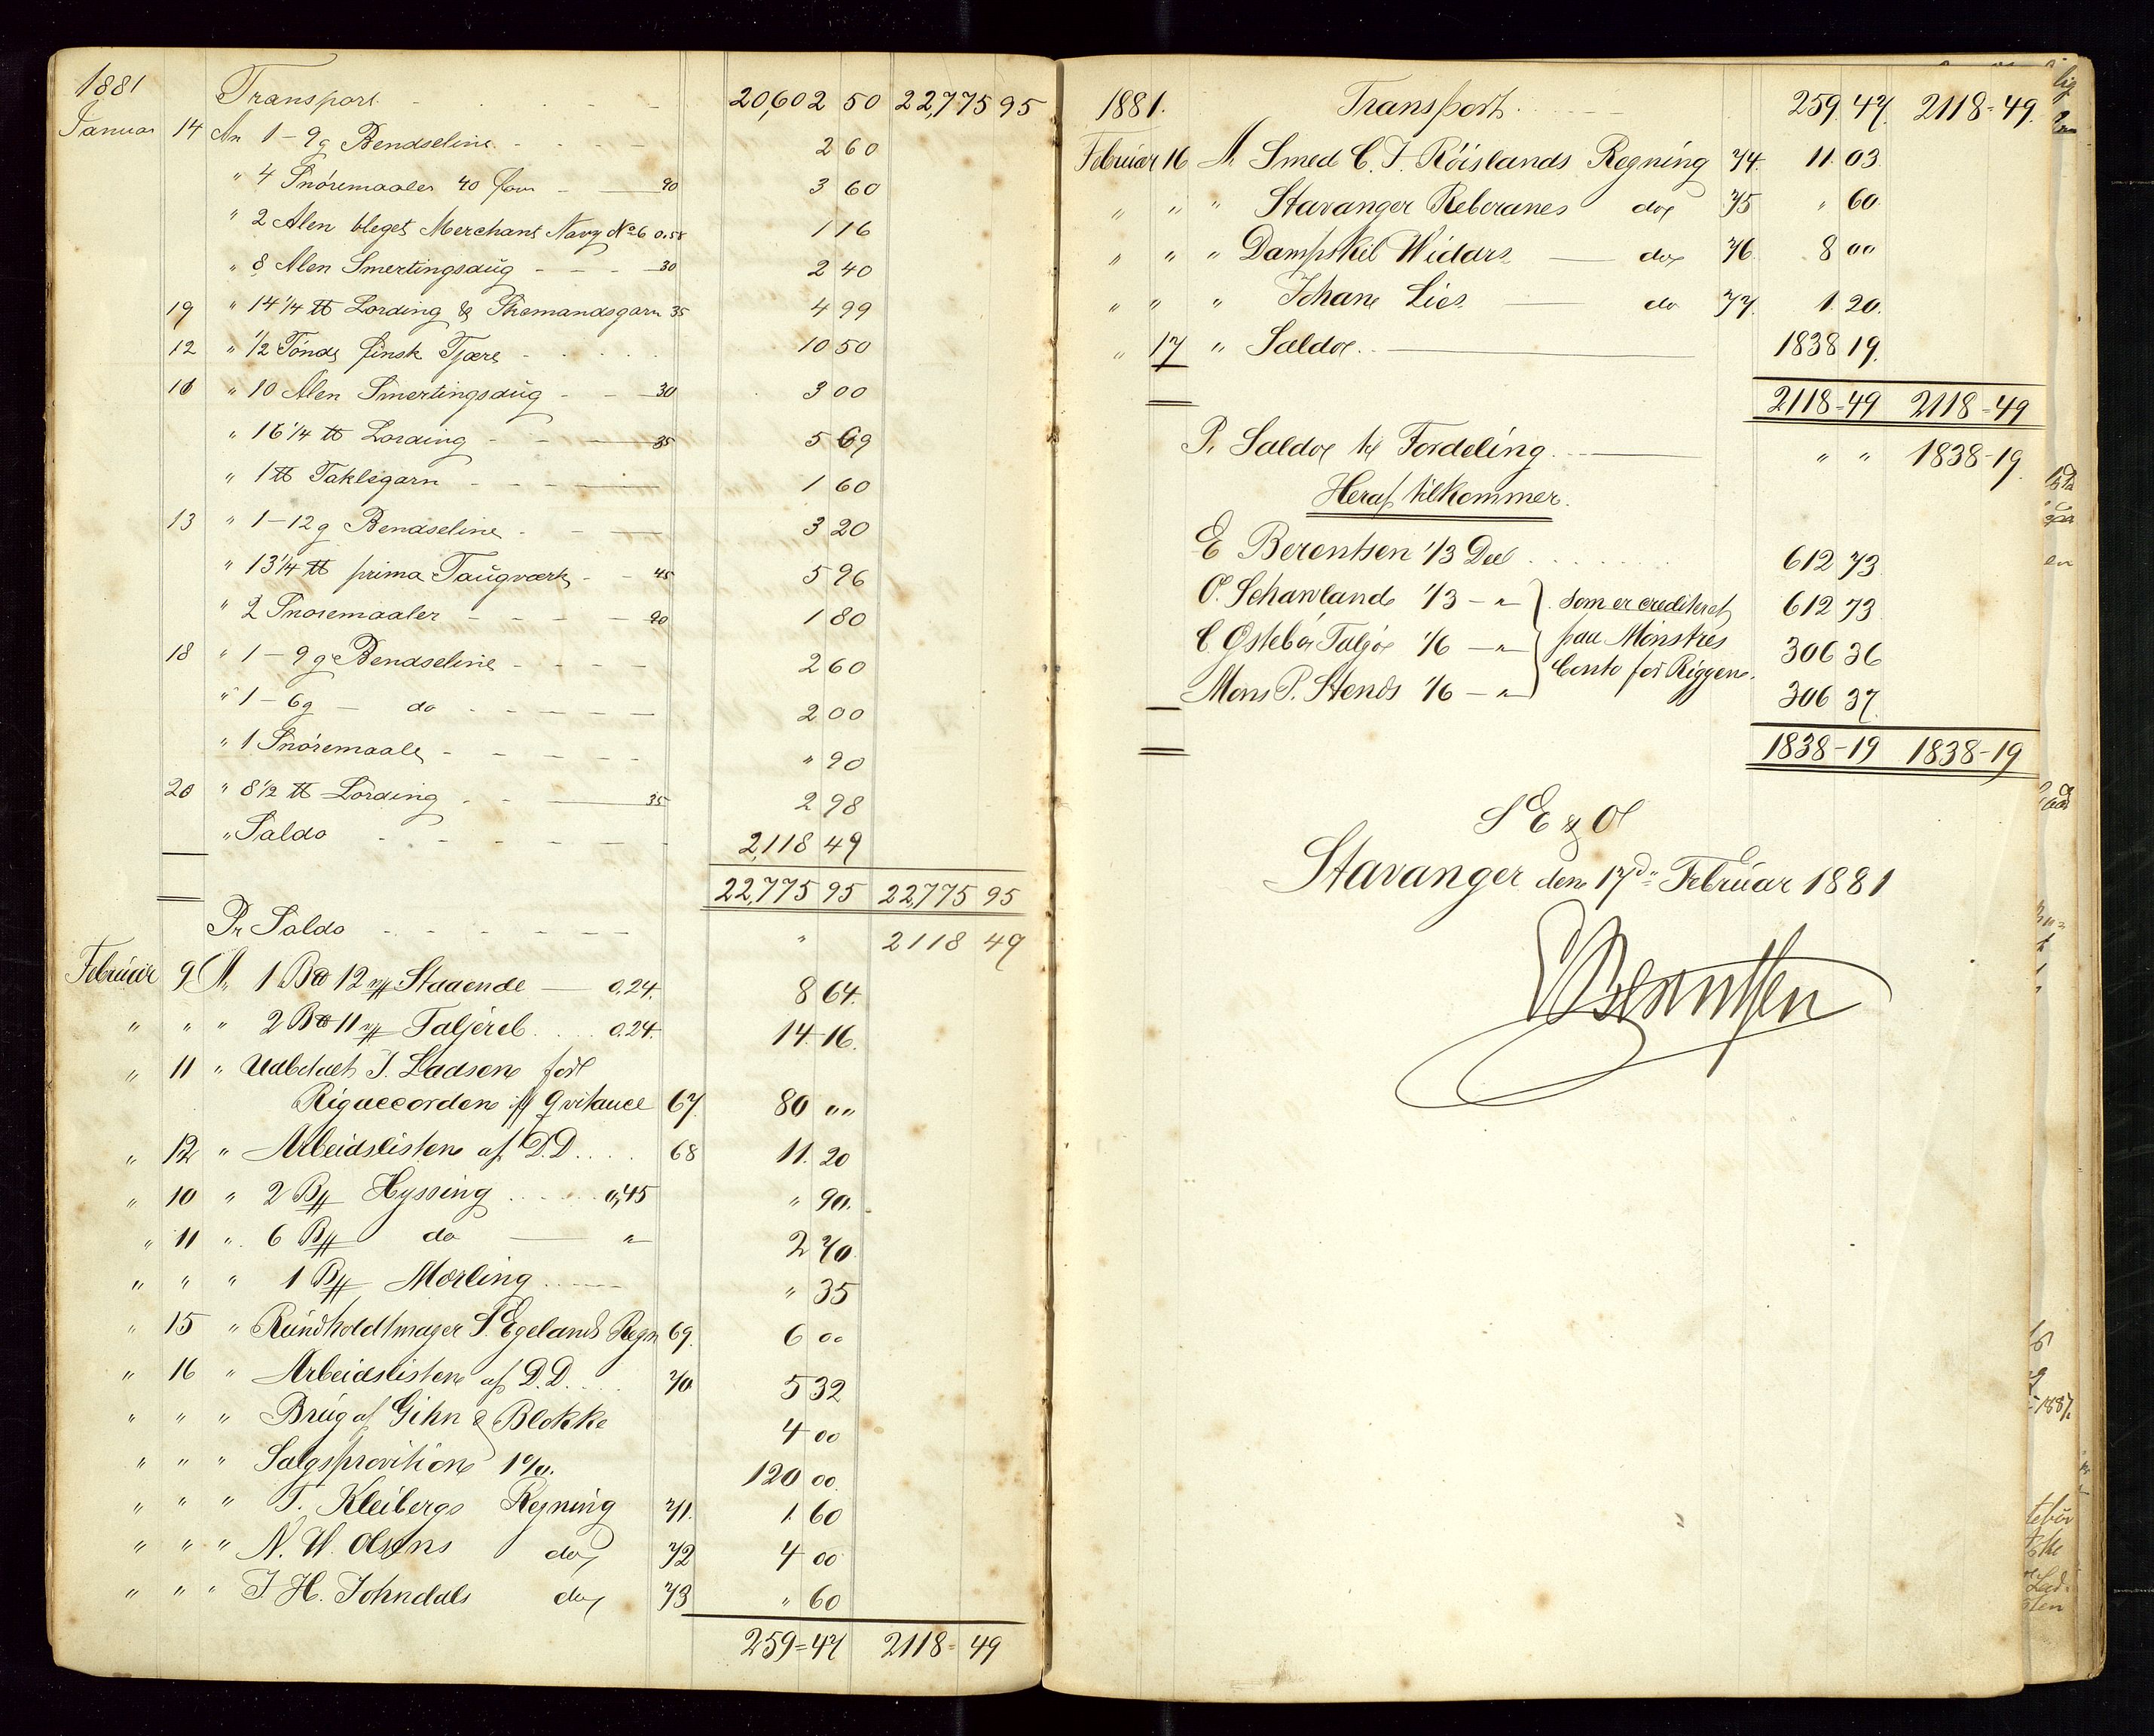 1881 Transport 20,602 50 22,775 95
Januar 14 An 1 - 9 g Bendseline 2 60
" 4 Snöremaaler 40 favn 90 3 60
" 2 Alen bleget Merchant Navy No 6 0.58 1 16
" 8 Alen Smertingsdug 30 2 40
19 " 14 1/4 ℔ Lording & Skiemandsgarn 35 4 99
12 " 1/2 Tönde finsk Tjære 10 50
" 10 Alen Smertingsdug 30 3 00
" 16 1/4 ℔ Lording 35 5 69
" 1 ℔ Taklegarn 1 60
13 " 1 - 12 g Bendseline 3 20
" 13 1/4 ℔ prima Taugværk 45 5 96
" 2 Snoremaaler 90 1 80
18 " 1 - 9 g Bendseline 2 60
" 1 - 6 g — do 2 00
" 1 Snöremaale " 90
20 " 8 1/2 ℔ Lording 35 2 98
" Saldo 2,118 49
22,775 95 22,775 95
Pr Saldo " 2118 49
Februar 9 A. 1 B 12 Staaende — 0.24. 8 64.
" " " 2 B 11 Taljereb 0.24. 14 16.
" 11 " Udbetalt J. Ladsen for
Rigaccorden Qvitance 67 80 ""
" 12 " Arbeidslisten af D.D. 68 11. 20
" 10 " 2 B Hyssing 0,45 " 90.
" 11 " 6 B do — " 2 70.
" " " 1 B Merling " 35
" 15 " Rundholdtmager S. Egelands Regn 69. 6 00
" 16 " Arbeidslisten af D.D. 70 5 32
" " " Brug af Gihn & Blokke 4 00
" " " Salgsprovition 1 %. 120 00.
" " " T. Kleibergs Regning 71. 1. 60
" " " N. W. Olsens do 72 4 00
" " " J. H. Johndals do 73 " 60
259 = 47 2118 = 49
1881. Transport 259. 47. 2118 = 49.
Februar 16 A. Smed C. J. Röislands Regning 74. 11. 03.
" " " Stavanger Reberanes do 75 " 60.
" " " Dampskib Widars — do 76. 8 00
" " " Johan Lies — do 77. 1. 20.
" 17 " Saldo 1838 19.
2118 - 49 2118 - 49
Pr Saldo til Fordeling " " 1838 - 19.
Heraf tilkommer.
E Berentsen 1/3 Deel 612 73
O. Schanlande 1/3 — " som er crediteret 612 73
C. Östebör Taljö 1/6 — " paa Mönstres 306 36
Mons P. Stends 1/6 — " Conto for Riggen. 306 37.
1838 - 19 1838 - 19
S E & O
Stavanger den 17de Februar 1881
E Berentsen